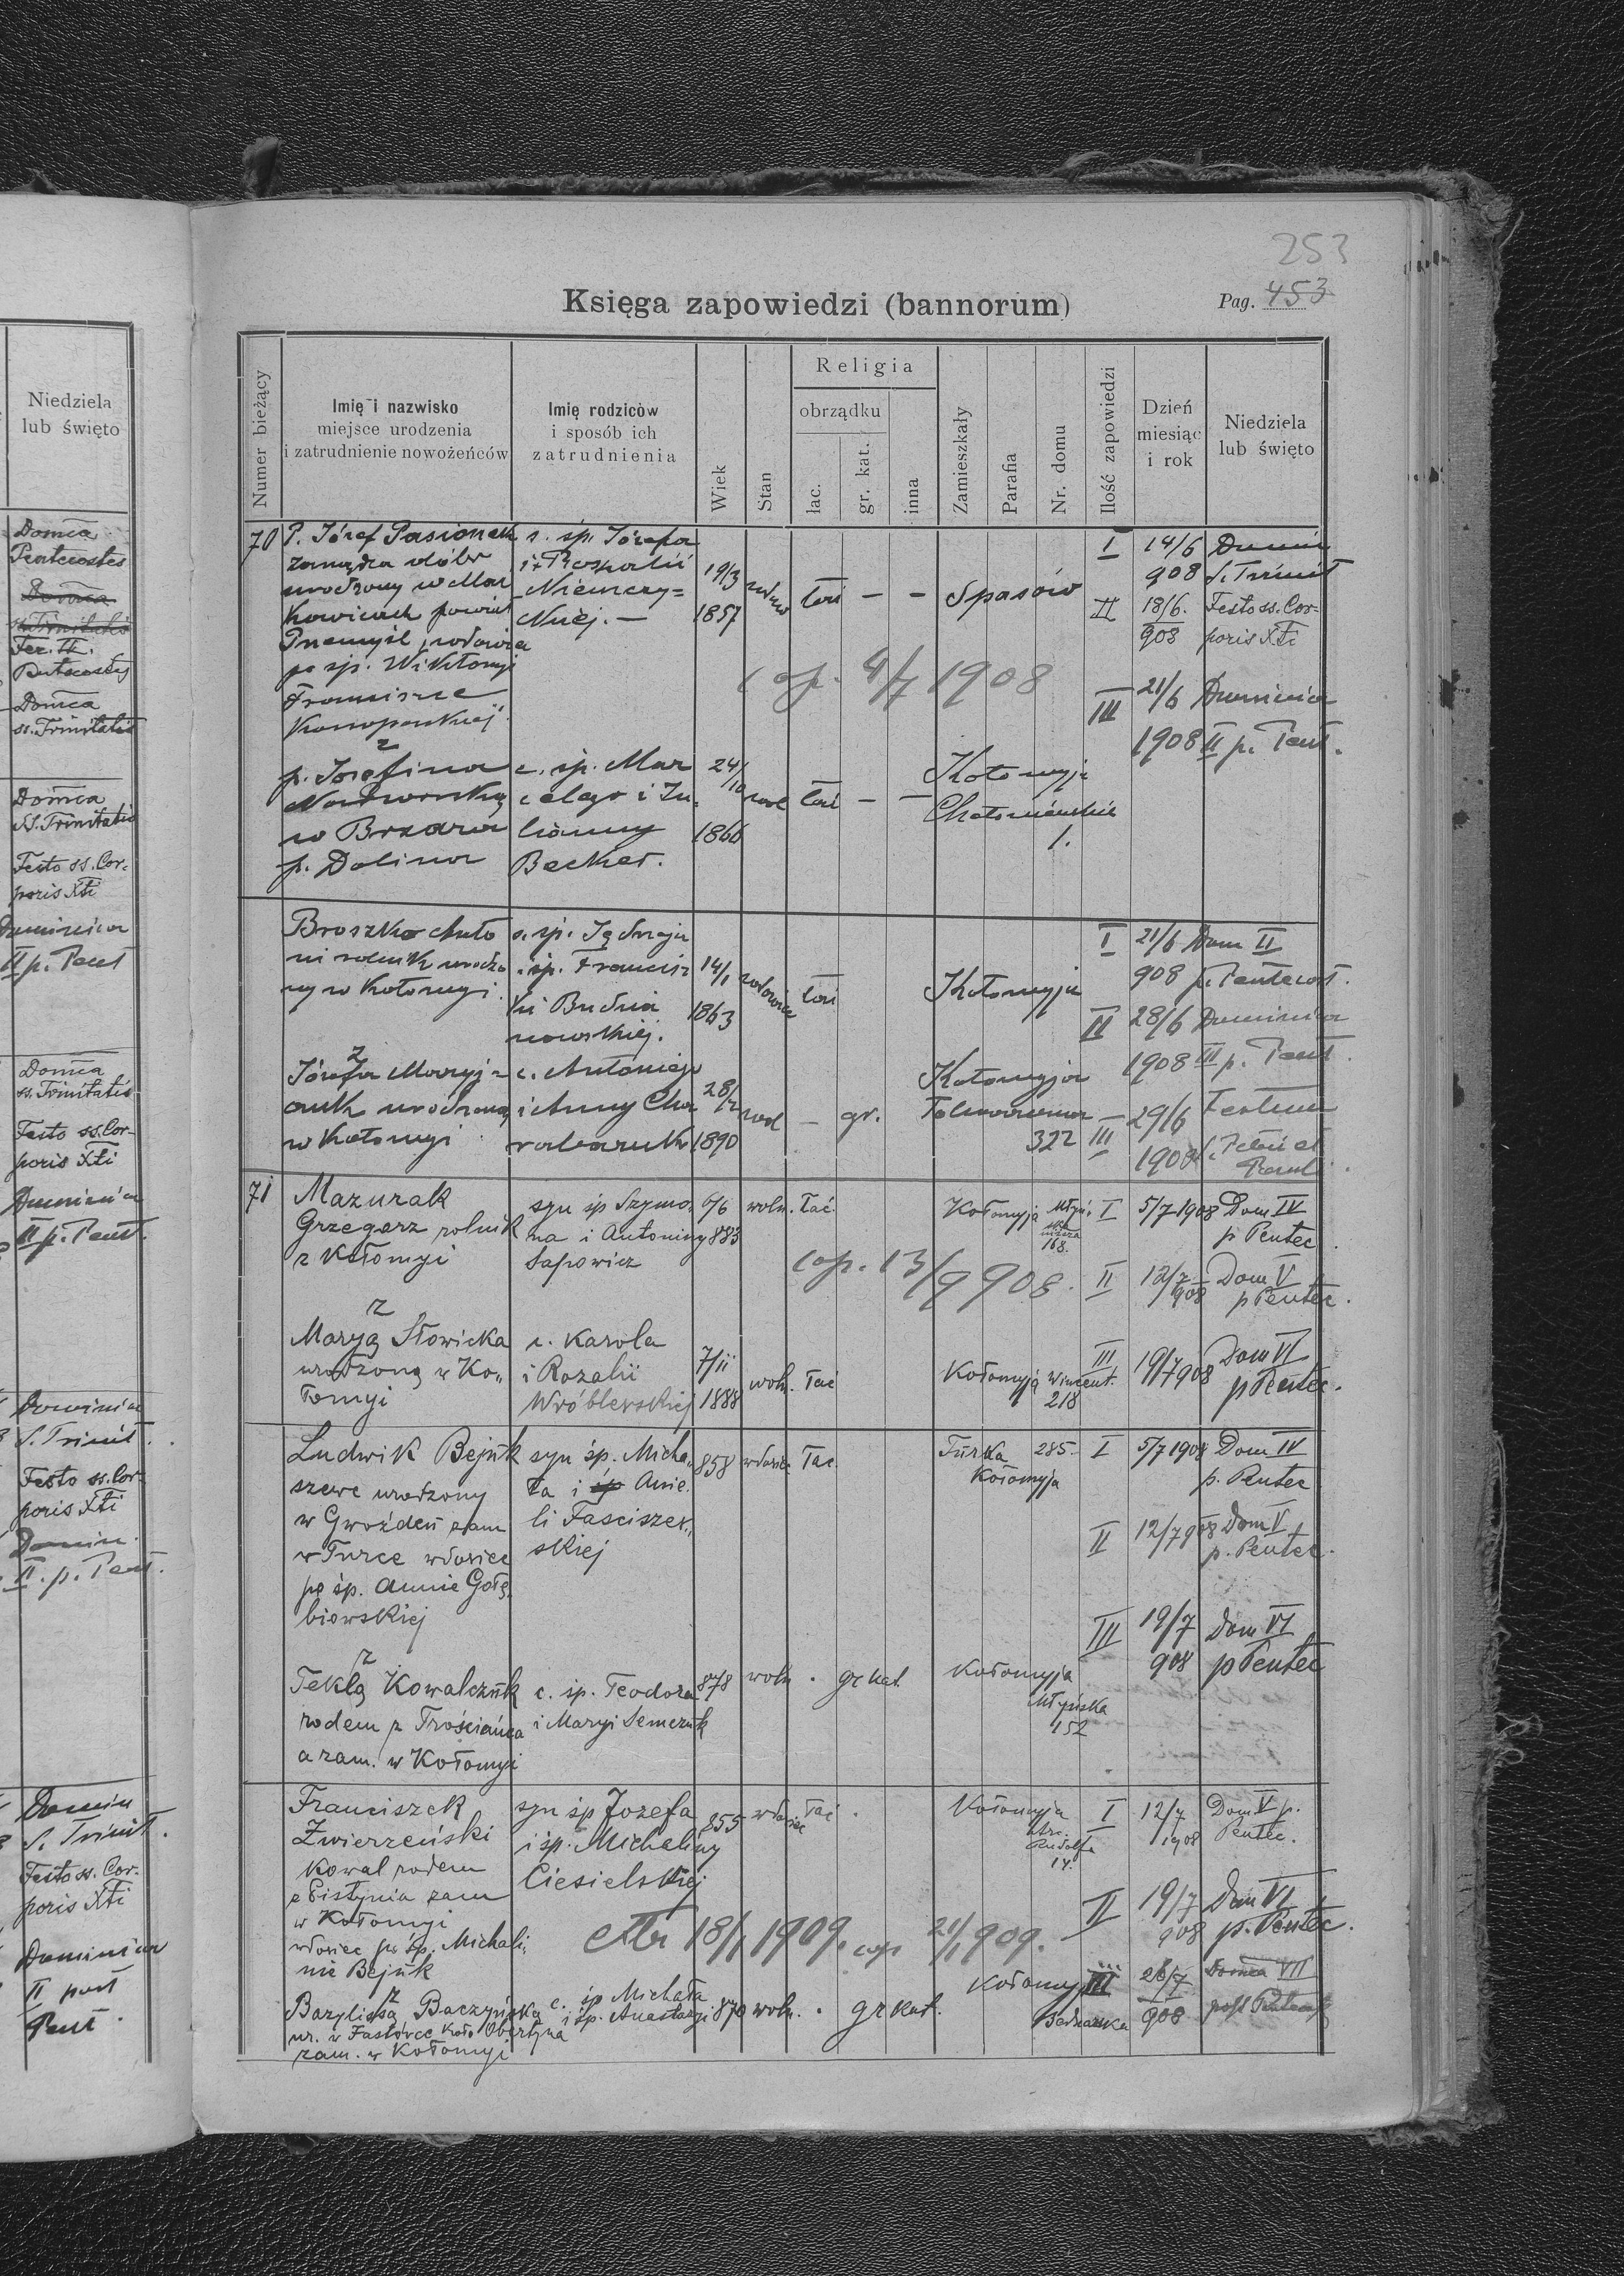 253
Księga zapowiedzi (bannorum)
Pag. 453
Numer bieżący
Imię i nazwisko
miejsce urodzenia
i zatrudnienie nowożeńców
Imię rodziców
i sposób ich
zatrudnienia
Wiek
Stan
Religia
obrządku
łac.
gr. kat.
inna
Zamieszkały
Parafia
Nr. domu
Ilość zapowiedzi
Dzień
miesiąc
i rok
Niedziela
lub święto
Niedziela
lub święto
Domca
Pentecostes
Fer. II.
Pentecostes
Domca
ss. Trinitatis
Domca
ss. Trinitatis
Festo ss. Cor-
poris Xti
Dominica
II p. Pent
Domca
ss. Trinitatis
Festo ss. Cor-
poris Xti
Dominica
II p. Pent.
Dominica
S. Trinit.
Festo ss. Cor-
poris Xti
Domin.
II. p. Pent.
Domin
S. Trinit.
Festo ss. Cor-
poris Xti
Dominica
II post
Pent
70
P. Józef Pasionek
zarządca dóbr
urodzony w Mać
kowicach powiat
Przemyśl, wdowiec
po śp. Wiktoryi
Franciszce
z
p. Josefina
w
p. Dolina
s. śp. Józefa
i
Niemczy-
ckiej. —
c. śp. Mar
celego i Ju-
lianny
Becker.
19/3
1857
wdow
łaci — —
Spasów
I 14/6
908
S. Trinit
II 18/6.
908
Festo ss. Cor-
poris Xti
III 21/6
1908
Dominica
II p. Pent.
cop. 4/7 1908
24/10
1866
łaci — —
Kołomyja
1.
Broszko Anto
ni rolnik urodzo
ny w Kołomyi.
z
Józefa Maryj-
ank urodzoną
w Kołomyi
s. śp. Jędrzeja
i śp. Francisz
ki Budzia
nowskiej.
c. Antoniego
i Anny Cha
rabaruk
14/1
1863
wdowiec
łaci
Kołomyja
I 21/6
908
Dom II
p. Pentecost.
II 28/6
1908
Dominica
III p. Pent.
28/2
1890
wol
— gr.
Kołomyja
322
III 29/6
1908
Festum
S. Petri et
Pauli.
71
Mazurak
Grzegorz rolnik
z Kołomyi
z
Maryą Słowicka
urodzoną w Ko„
łomyi
syn śp Szymo„
na i Antoniny
Sapowicz
c. Karola
i Rozalii
Wróblewskiej
6/6
883
woln. łać
Kołomyja
168.
I 5/7 1908
Dom IV
p Pentec.
cop. 13/9 908.
II 12/7
908
Dom V
p Pentec.
7/11
1888
woln. łać
Kołomyja Wincent.
218
III 19/7 908
Dom VI
p Pentec.
Ludwik Bejuk
szewc urodzony
w Gwoźdźń zam
w Turce wdowiec
po śp. Annie Gołę„
biowskiej
z
Teklą Kowalczuk
rodem z Trościańca
a zam. w Kołomyi
syn śp. Micha„
ła i śp Anie„
li Fasciszew„
skiej
c. śp. Teodora
i Maryi Semczuk
858
wdowiec łac
Turka 285.
Kołomyja
I 5/7 1908
Dom IV
p. Pentec
II 12/7 908
Dom V
p. Pentec.
III 19/7
908
Dom VI
p Pentec
878
woln . gr kat.
Kołomyja
Młyńska
152
Franciszek
Zwierzeński
kowal rodem
z Pistynia zam
w Kołomyi
wdowiec po śp. Michali„
nie Bejuk
z
Bazylissą Baczyńską
ur. w Fastówce koło Obertyna
zam. w Kołomyi
syn śp Józefa
i śp. Michaliny
Ciesielskiej
c. śp Michała
i śp. Anastazyi
855
wdowiec łać.
Kołomyja
Rudolfa
14.
I 12/7
1908
Dom V p.
Pentec.
II 19/7
908
Dom VI
p. Pentec.
18/1 1909. cop 21/1 909.
870 woln. . gr kat.
Kołomyja
Bednarska
III 26/7
908
Domca VII
post Pentec